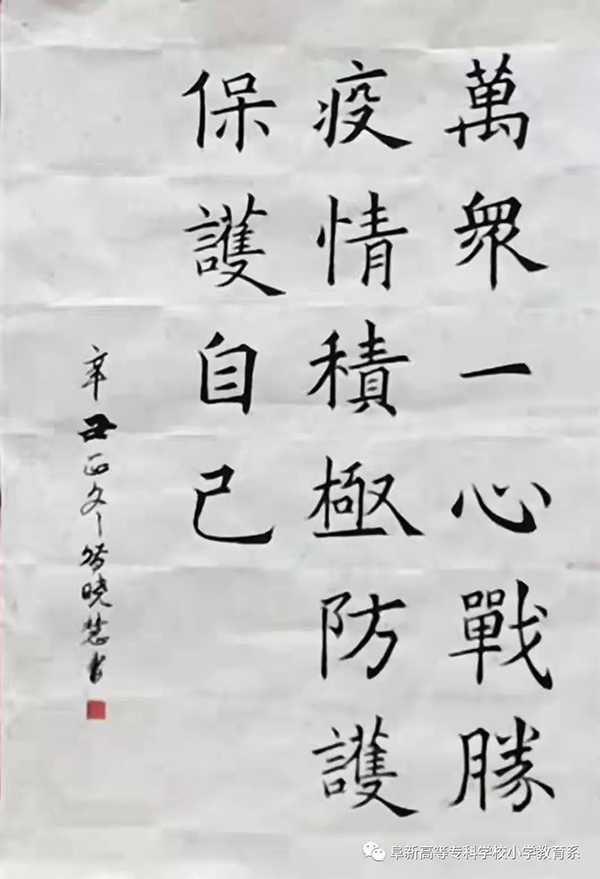 萬衆一心戰勝
疫情積極防護
保護自己
辛丑正冬
晓慧书
阜新高等专科学校小学教育系